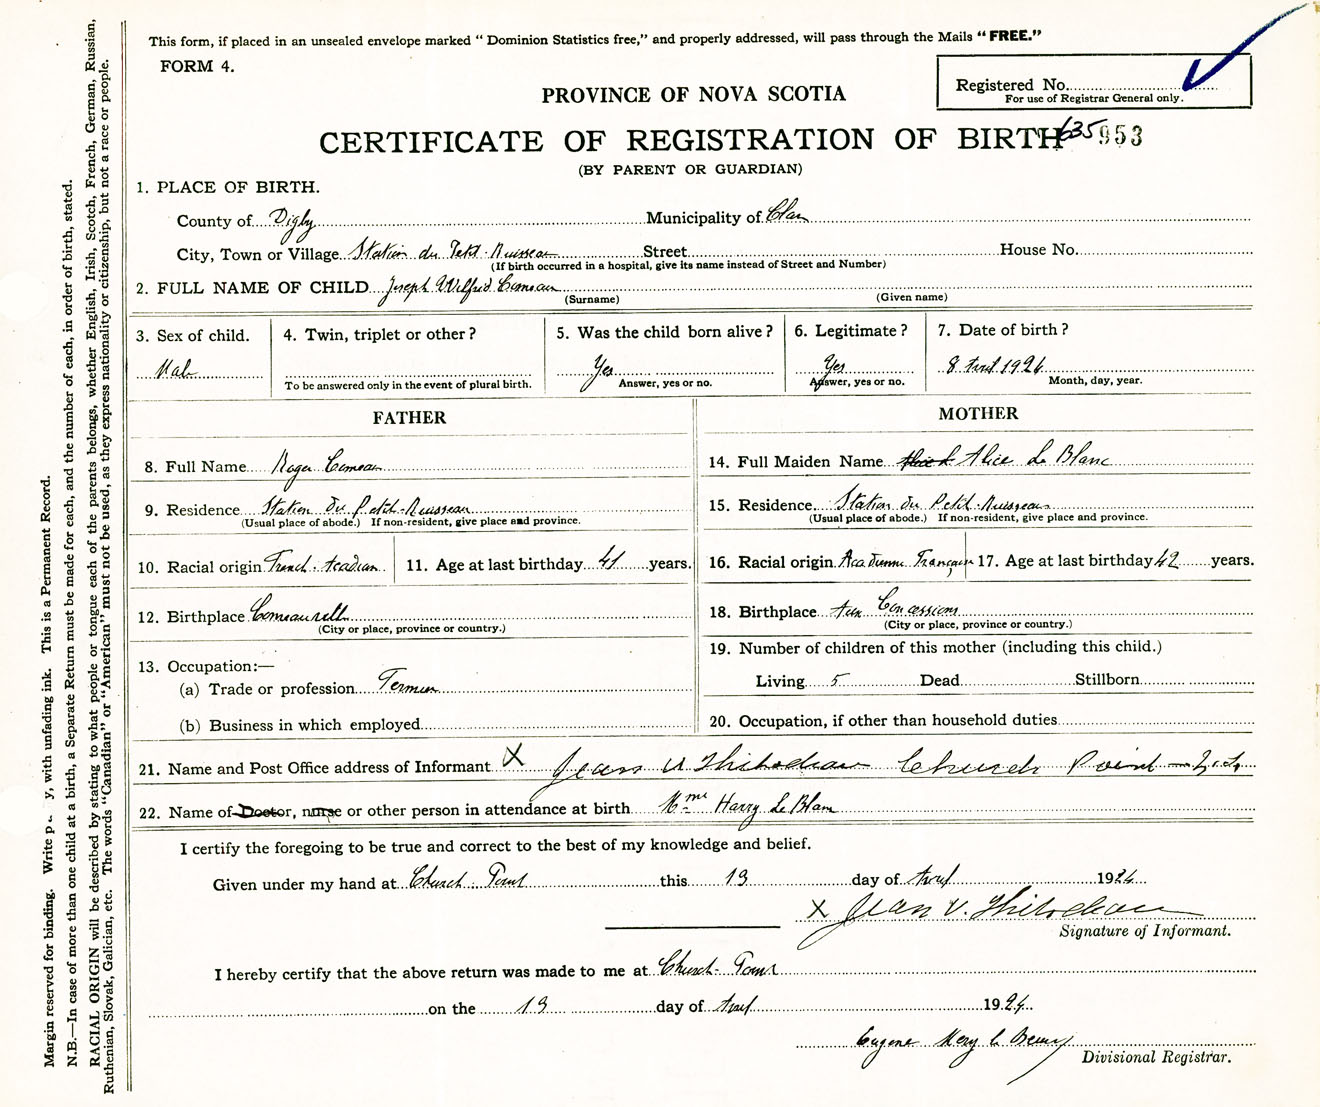 This form, if placed in an unsealed envelope marked "Dominion Statistics free," and properly addressed, will pass through the Mails "FREE."
FORM 4.
Registered No.
For use of Registrar General only.
PROVINCE OF NOVA SCOTIA
CERTIFICATE OF REGISTRATION OF BIRTH 635953
(BY PARENT OR GUARDIAN)
1. PLACE OF BIRTH.
County of Digby Municipality of Clare
City, Town or Village Station du Petit-Ruisseau Street House No.
(If birth occurred in a hospital, give its name instead of Street and Number)
2. FULL NAME OF CHILD Joseph Wilfred Comeau
(Surname) (Given name)
3. Sex of child. 4. Twin, triplet or other? 5. Was the child born alive? 6. Legitimate? 7. Date of birth?
Male Yes Yes 8 Avril 192
To be answered only in the event of plural birth. Answer, yes or no. Answer, yes or no. Month, day, year.
FATHER MOTHER
8. Full Name Roger Comeau 14. Full Maiden Name Alice Le Blanc
9. Residence Station du Petit-Ruisseau 15. Residence Station du Petit-Ruisseau
(Usual place of abode.) If non-resident, give place and province. (Usual place of abode.) If non-resident, give place and province.
10. Racial origin French-Acadian 11. Age at last birthday 41 years. 16. Racial origin Acadienne Française 17. Age at last birthday 42 years.
12. Birthplace Comeauville 18. Birthplace Aux Concessions
(City or place, province or country.) (City or place, province or country.)
13. Occupation:— 19. Number of children of this mother (including this child.)
(a) Trade or profession Fermier Living 5 Dead Stillborn
(b) Business in which employed 20. Occupation, if other than household duties
21. Name and Post Office address of Informant X Jean V Thibodeau Church Point - N.S.
22. Name of Doctor, nurse or other person in attendance at birth Mme Harry Le Blanc
I certify the foregoing to be true and correct to the best of my knowledge and belief.
Given under my hand at Church-Point this 13 day of Avril 192
X Jean V. Thibodeau
Signature of Informant.
I hereby certify that the above return was made to me at Church-Point
on the 13 day of Avril 192
Eugene
Divisional Registrar.
Margin reserved for binding. Write p y, with unfading ink. This is a Permanent Record.
N.B.—In case of more than one child at a birth, a Separate Return must be made for each, and the number of each, in order of birth, stated.
RACIAL ORIGIN will be described by stating to what people or tongue each of the parents belongs, whether English, Irish, Scotch, French, German, Russian,
Ruthenian, Slovak, Galician, etc. The words "Canadian" or "American" must not be used, as they express nationality or citizenship, but not a race or people.